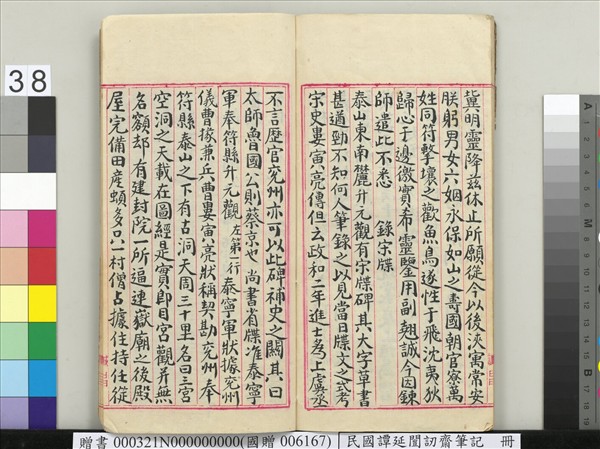 冀明靈降茲休止所願從今以後浹寓常安
朕躬男女六姻永保如山之壽國朝官寮萬
姓同符擊壤之歡魚鳥遂性于飛沈夷狄
歸心于邊徼實希靈鑒用副翹誠今因鍊
師遣此不悉 錄宋牒
泰山東南麓升元觀有宋牒碑其大字草書
甚遒勁不知何人筆錄之以見當日牒文之式考
宋史婁寅亮傳但云政和二年進士為上虞丞
不言歷官兗州亦可以此碑補史之闕其曰
太師魯國公則蔡京也 尚書省牒准泰寧
軍奉符縣升元觀 左第一行泰寧軍狀據兗州
儀曹掾兼兵曹婁寅亮狀稱契勘兗州奉
符縣泰山之下有古洞天周三十里名曰三宮
空洞之天載在圖經是實即目宮觀并無
名額却有建封院一所逼連嶽廟之後殿
屋完備田產頗多只一村僧占據住持任從
38
贈書 000321N000000000(國贈 006167)
民國譚延闓訒齋筆記 冊